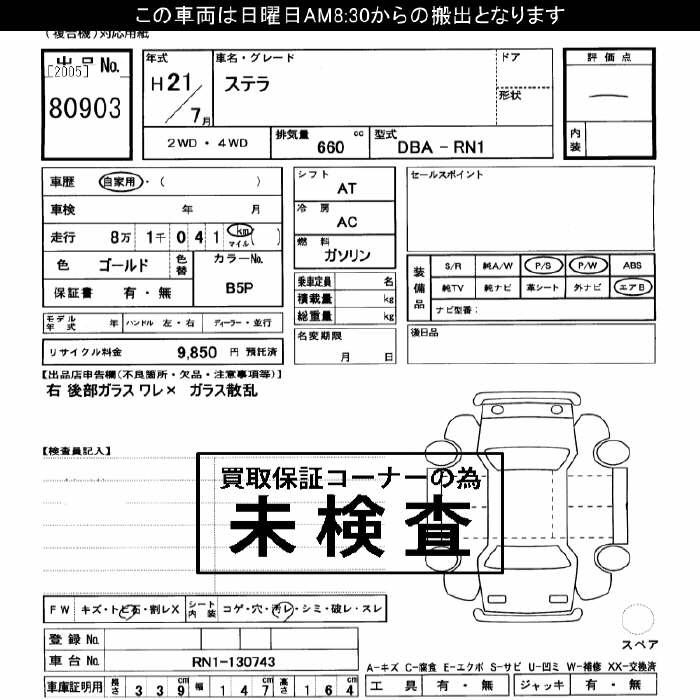 この車両は日曜日AM8:30からの搬出となります
(複合機)対応用紙
出品No.
[2005]
80903
年式
H21/7月
車名・グレード
ステラ
ドア
形状
評価点
内装
2WD・4WD
排気量 660 cc
型式 DBA - RN1
車歴 自家用・( )
車検 年 月
走行 8万 1千 0 4 1 km マイル ( )
色 ゴールド 色替
カラーNo. B5P
保証書 有・無
シフト AT
冷房 AC
燃料 ガソリン
乗車定員 名
積載量 kg
総重量 kg
セールスポイント
装備品
S/R 純A/W P/S P/W ABS
純TV 純ナビ 革シート 外ナビ エアB
ナビ型番:
モデル年式 年 ハンドル 左・右 ディーラー・並行
名変期限 月 日
後日品
リサイクル料金 9,850 円 預託済
【出品店申告欄(不良箇所・欠品・注意事項等)】
右 後部ガラス ワレ× ガラス散乱
【検査員記入】
買取保証コーナーの為
未検査
FW キズ・トビ石・割レX シート内装 コゲ・穴・汚レ・シミ・破レ・スレ
登録No.
車台No. RN1-130743
車庫証明用 長さ 339cm 幅 147cm 高さ 164cm
スペア
A-キズ C-腐食 E-エクボ S-サビ U-凹ミ W-補修 XX-交換済
工具 有・無 ジャッキ 有・無